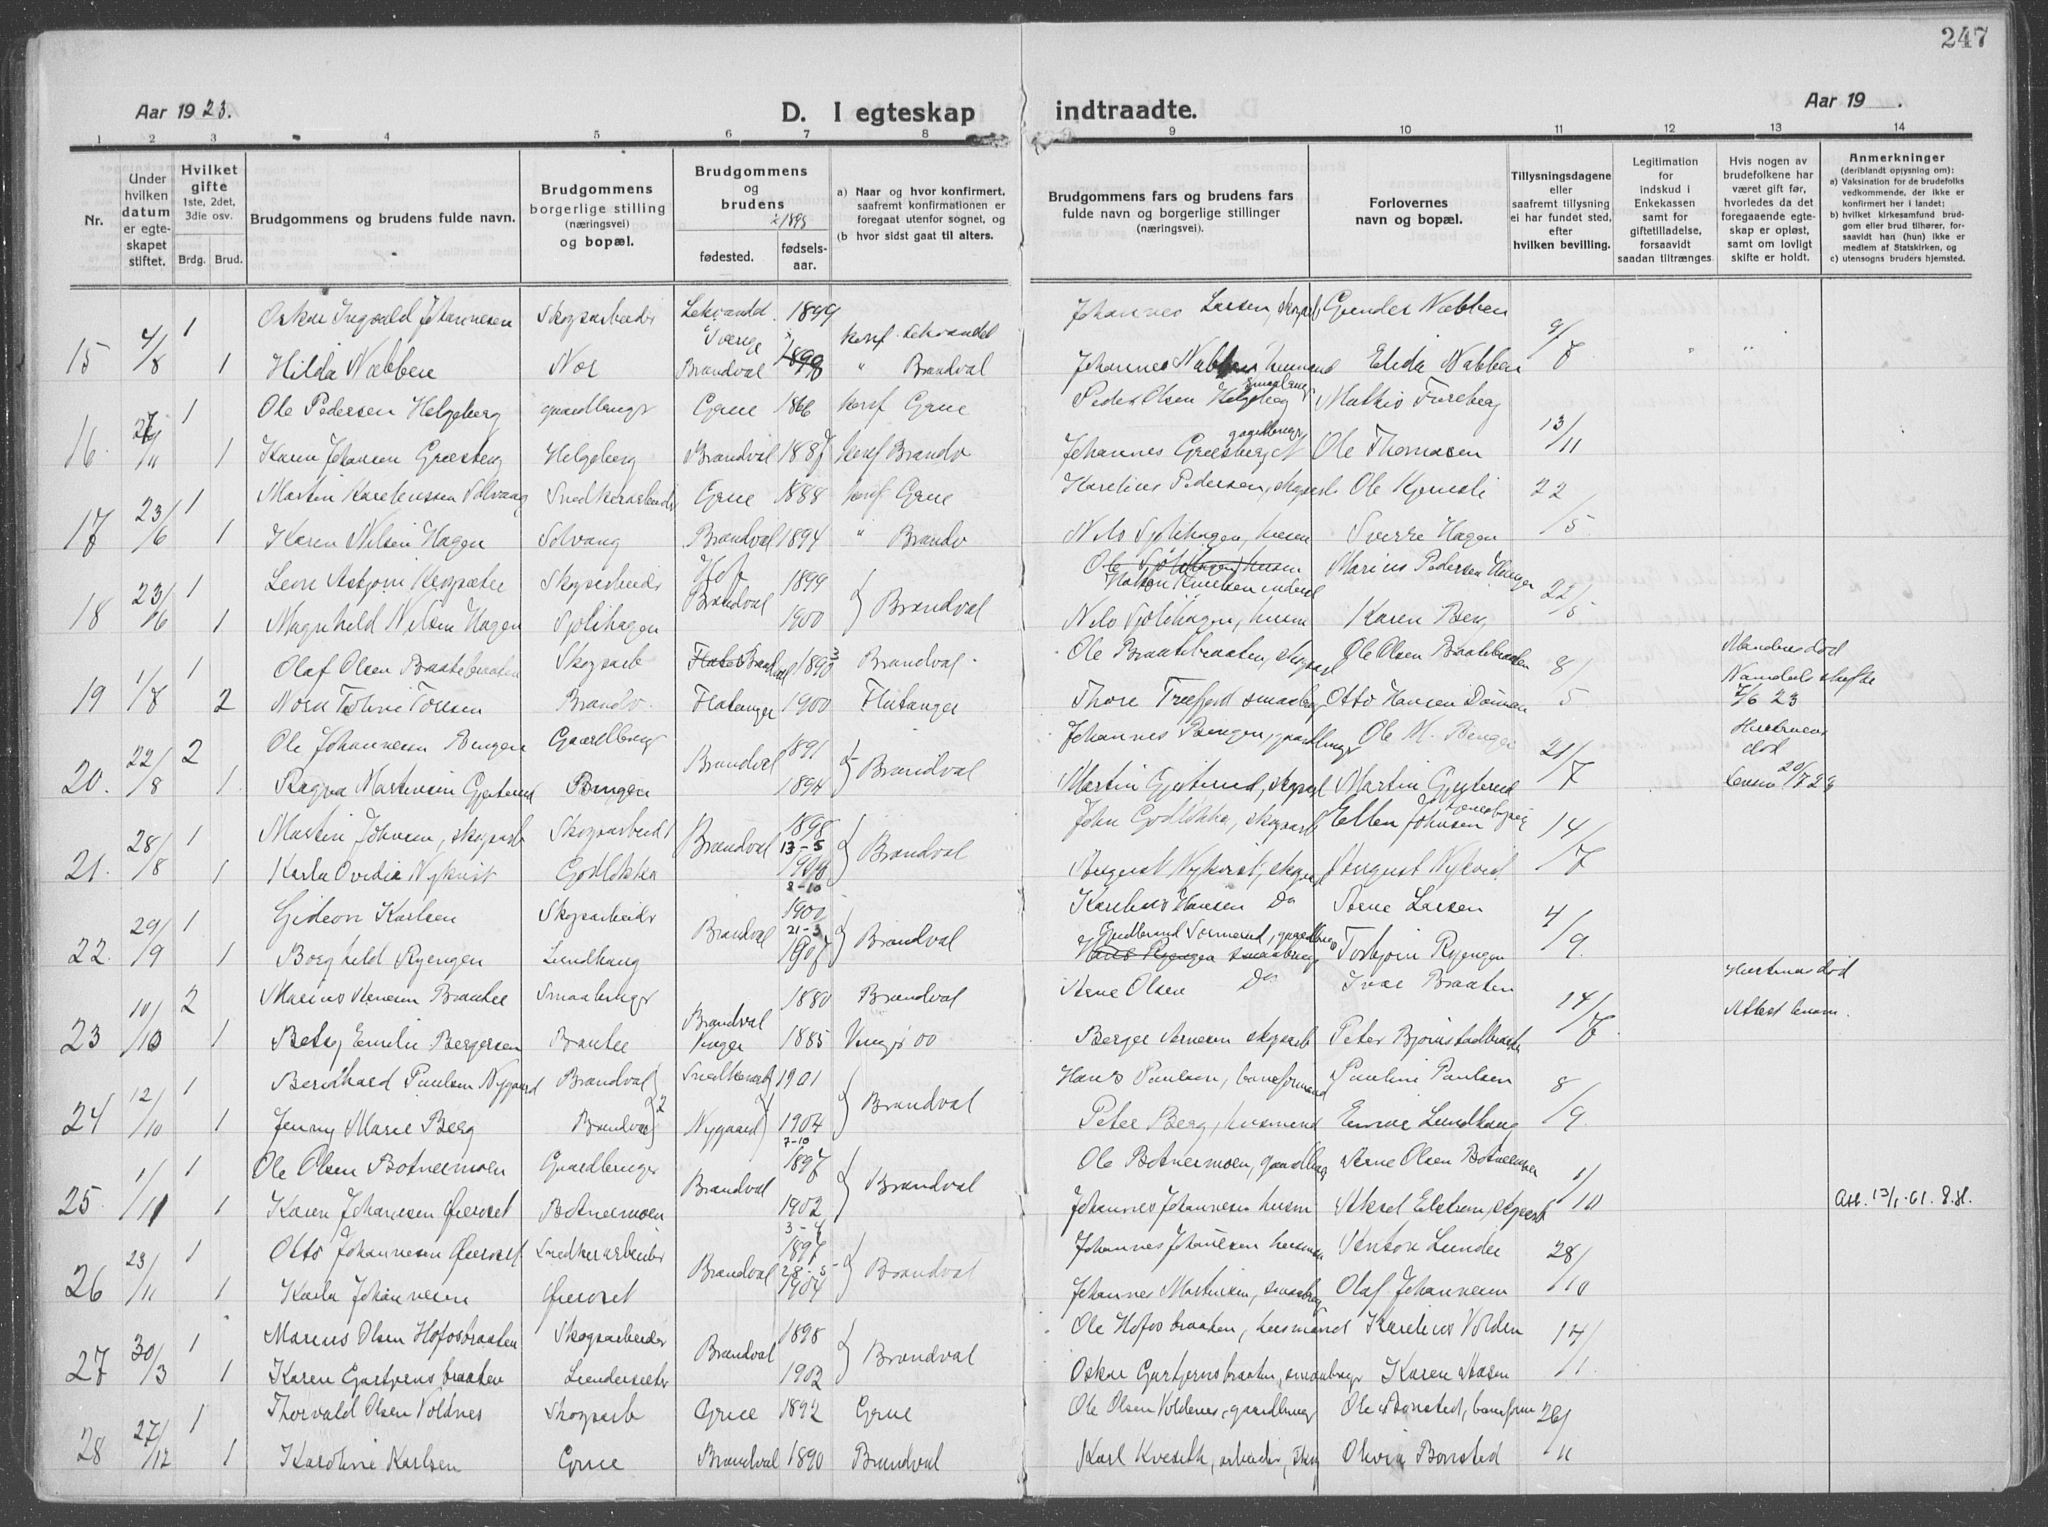 247
Aar 1923. D. I egteskap indtraadte. Aar 19 .
1 2 3 4 5 6 7 8 9 10 11 12 13 14
Nr.
Under hvilken datum er egteskapet stiftet.
Hvilket gifte 1ste, 2det, 3die osv.
Brdg. Brud.
Brudgommens og brudens fulde navn.
Brudgommens borgerlige stilling (næringsvei) og bopæl.
Brudgommens og brudens
fødested. fødselsaar.
a) Naar og hvor konfirmert, saafremt konfirmationen er foregaat utenfor sognet, og
(b hvor sidst gaat til alters.
Brudgommens fars og brudens fars fulde navn og borgerlige stillinger (næringsvei).
Forlovernes navn og bopæl.
Tillysningsdagene eller saafremt tillysning ei har fundet sted, efter hvilken bevilling.
Legitimation for indskud i Enkekassen samt for giftetilladelse, forsaavidt saadan tiltrænges
Hvis nogen av brudefolkene har været gift før, hvorledes da det foregaaende egteskap er opløst, samt om lovligt skifte er holdt.
Anmerkninger (deriblandt opjysning om):
a) Vaksination for de brudefolks vedkommende, der ikke er konfirmert her i landet;
b) hvilket kirkesamfund brudgom eller brud tilhører, forsaavidt han (hun) ikke er medlem af Statskirken, og
c) utensogns bruders hjemsted.
15 4/8 1 Oskar Ingvald Johannesen Skogsarbeider 1899 Johannes Larsen, skogsarb Gunder Næbben 9/7
1 Hilda Næbben Nor Brandval 1898 " Brandval Johannes Nabben husmand Elida Nabben
16. 27/11 1 Ole Pedersen Helgeberg gaardbruger Grue 1866 konf Grue Peder Olsen Helgeberg Mathis Fureberg 13/11
1 Karen Johansen Greesberg Helgeberg Brandval 1887 konf Brandv Johannes Greesberg gaardbruger Ole Thomasen
17 23/6 1 Martin Kareliussen Solvang Snedkerarbeider Grue 1888 konf Grue Karelius Pedersen, skogsarb Ole Kjernsli 22/5
1 Karen Nilsen Hagen Solvang Brandval 1894 " Brandv Nils Sjølihagen, husm Sverre Hagen
18 23/6 1 Leon Asbjørn Skogsarbeider Hof 1899 Brandval Marius Pedersen Hanger 22/5
1 Magnhild Nilsen Hagen Sjølihagen Brandval 1900 Nils Sjølihagen, husm Karen Berg
19 1/7 1 Olaf Olsen Braatebraaten Skogsarb Brandval 1893 Brandval Ole Braatebraaten, skogsarb Ole Olsen Braatebraaten 8/5 Mandens død
2 Nora Toline Toresen Brandv. Flatanger 1900 Flatanger Thore Trefjord smaabrug Otto Hansen 7/6 23
20. 22/8 2 Ole Johannesen Bengen Gaardbrug Brandval 1891 Brandval Johannes Bengen, gaardbruger Ole M. Benger 21/7 Hustruens død
1 Ragna Martinsen Gjesterud Bingen 1894 Martin Gjesterud, skogsarb Martin Gjesterud
21. 28/8 1 Martin Johnsen, skogsarb Skogsarbeid Brandval 1898 13-5 Brandval John Godlökka, skogsarb Ellen Johnsen 14/7
1 Karla Ovidia Nykvist Godlökka 8-10 August Nykvist, skogsarb August Nykvist
22. 29/9 1 Gideon Karlsen Skogsarbeider Brandval 1900 21-3 Brandval Karelius Hansen Do Arne Larsen 4/9
1 Borghild Ryengen Lundhaug 1907 Torbjørn Ryengen
23 10/10 2 Marius Arnesen Braaten Smaabruger Brandval 1880 Brandval Arne Olsen Do Ivar Braaten 14/7 Hustrues død
1 Betsy Emilie Bergersen Braaten Vinger 1885 Vinger 00 Berger Arnesen skogsarb Peter Bjørnstadbraaten Attest
24 12/10 1 Bernhard Paulsen Nygaard Brandval Snedkerarb 1901 Brandval Hans Paulsen, baneformand Pauline Paulsen 8/9
1 Jenny Marie Berg Brandval Nygaard 1904 Peter Berg, husmand Emma Lundhaug
25. 1/11 1 Ole Olsen Botnermoen Gaardbruger Brandval 7-10 1897 Brandval Ole Botnermoen, gaardbrug Arne Olsen Botnermoen 1/10
1 Karen Johannesen Øierset Botnermoen 1902 Johannes Johannesen husm Aksel Elstrøm, skogsarb Att. 13/1-61.
26 23/11 1 Otto Johannesen Øierset Snedkerarbeider Brandval 3-4 1897 Brandval Johannes Johannesen husman Anton Lunder 28/10
1 Karla Johannesen Øierset 28-5- 1904 Johannes Martinsen, smaabrug Olaf Johannesen
27 30/3 1 Marius Olsen Hofosbraaten Skogsarbeider Brandval 1898 Brandval Ole Hofosbraaten, husmand Karelius Volden 14/1
1 Karen Gartjernsbraaten Lundersæter 1902 Oskar Gartjernsbraaten, smaabruger Karen Aasen
28 27/12 1 Thorvald Olsen Voldnes Skogsarb Grue 1892 Grue Ole Olsen Voldenes, gaardbruger Ole Bonsted, baneform 26/11
1 Karoline Karlsen Grue Brandval 1890 Brandval Karl Kveseth, arbeider Olivia Bonsted